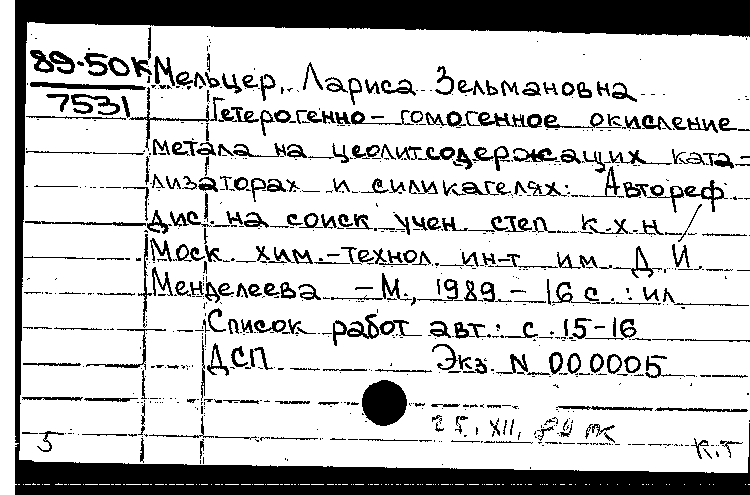 89-50К
7531
Мельцер, Лариса Зельмановна
Гетерогенно-гомогенное окисление
метала на цеолитсодержащих ката-
лизаторах и силикагелях: Автореф
дис. на соиск учен. степ к.х.н
Моск. хим.-технол. ин-т им. Д.И.
Менделеева -М., 1989 - 16 с. : ил
Список работ авт.: с. 15-16
ДСП Экз N 000005
25. XII. 89
5 К.Т